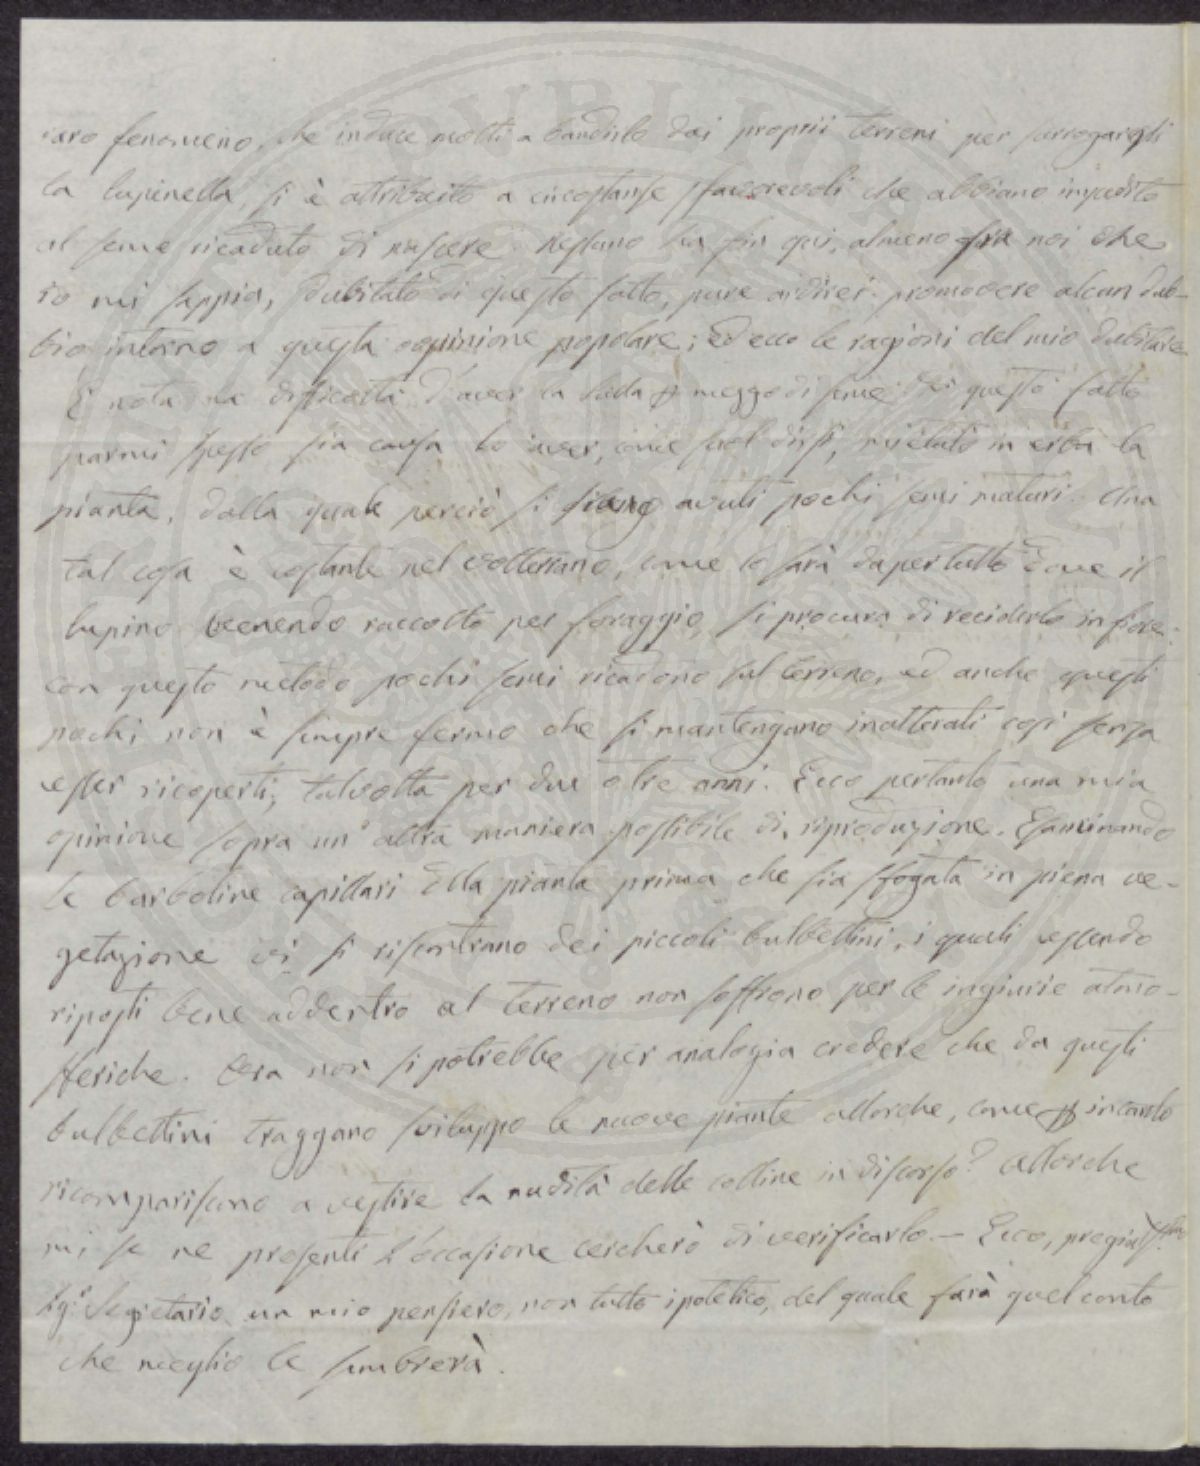 raro fenomeno, che induce molti a bandirlo dai proprii terreni per surrogargli
la lupinella, si è attribuito a circostanze sfavorevoli che abbiano impedito
al seme ricaduto di nascere. Nessuno ha fin qui, almeno fra noi che
io mi sappia, dubitato di questo fatto, pure ardirei promovere alcun dub-
bio intorno a questa oppinione popolare; ed ecco le ragioni del mio dubitare.
È nota la difficoltà d'aver la sulla per mezzo di seme: di questo fatto
parmi spesso sia causa lo aver, come suol dirsi, mietuto in erba la
pianta, dalla quale perciò si siano avuti pochi semi maturi. Una
tal cosa è costante nel volterrano, come lo sarà dapertutto dove il
lupino venendo raccolto per foraggio, si procura di reciderlo in fiore:
con questo metodo pochi semi ricadono sul terreno, ed anche questi
pochi non è sempre fermo che si mantengano inalterati così senza
esser ricoperti, talvolta per due o tre anni. Ecco pertanto una mia
opinione sopra un'altra maniera possibile di riproduzione. Esaminando
le barboline capillari della pianta prima che sia sfogata in piena ve-
getazione vi si riscontrano dei piccoli bulbettini, i quali essendo
riposti bene addentro al terreno non soffrono per le ingiurie atmo-
sferiche. Ora non si potrebbe per analogia credere che da questi
bulbettini traggano sviluppo le nuove piante allorche, come per incanto
ricompariscono a vestire la nudità delle colline in discorso? Allorche
mi se ne presenti l'occasione cercherò di verificarlo. — Ecco, pregiat.smo
Sig.r Segretario un mio pensiero, non tutto ipotetico, del quale farà quel conto
che meglio le sembrerà.